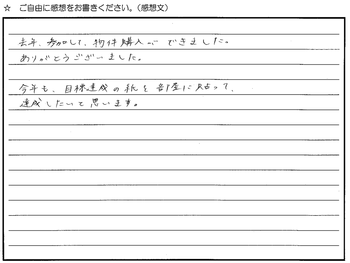 ☆ ご自由に感想をお書きください。(感想文)
去年、参加して、物件購入ができました。
ありがとうございました。
今年も、目標達成の紙を部屋に貼って、
達成したいと思います。